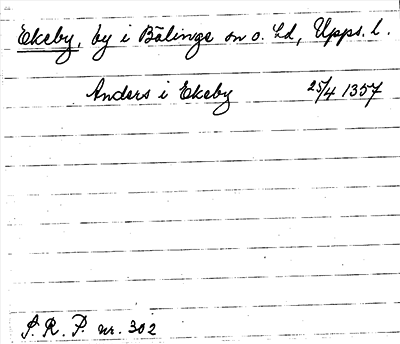 Ekeby, by i Bälinge sn o. Ld, Upps. l.
Anders i Ekeby 25/4 1357
S. R. P. nr. 302